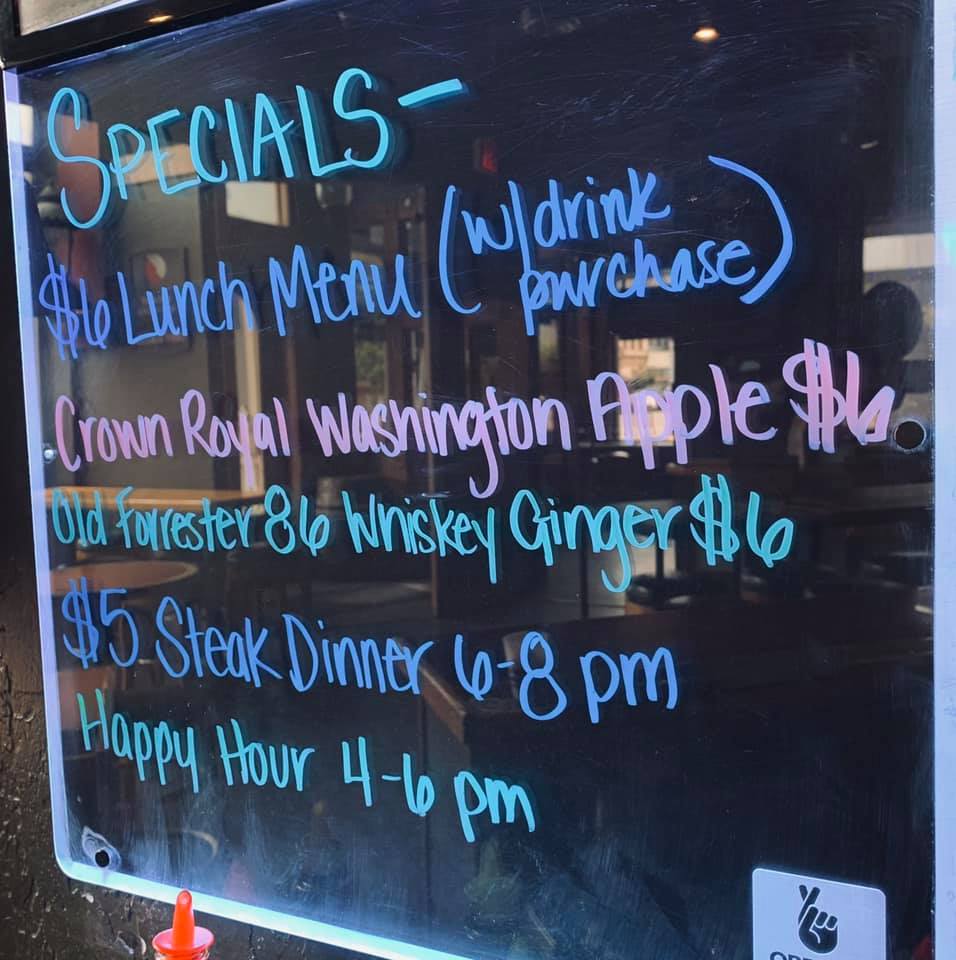 SPECIALS-
$6 Lunch Menu (w/drink
purchase)
Crown Royal Washington Apple $6
Old Forrester 86 Whiskey Ginger $6
$5 Steak Dinner 6-8 pm
Happy Hour 4-6 pm